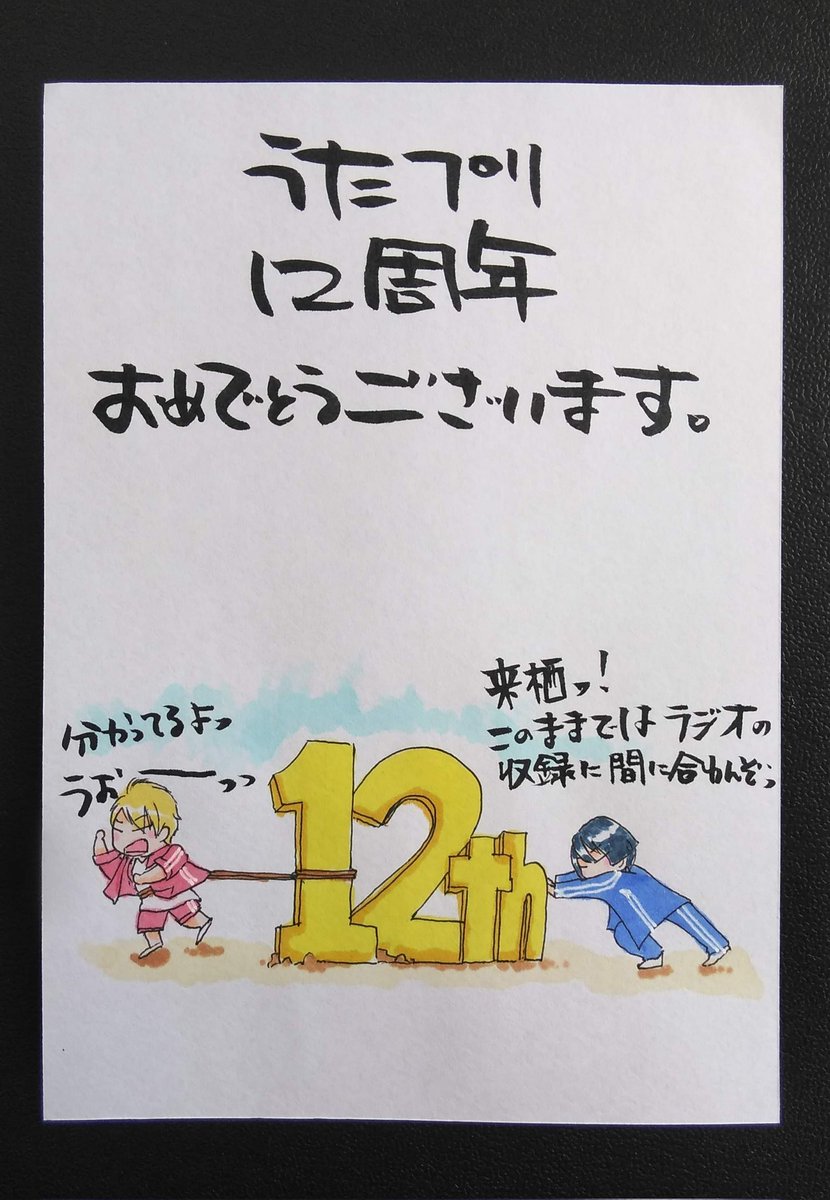 うたプリ
12周年
おめでとうございます。
来栖ッ!
このままではラジオの
収録に間に合わんぞっ
分かってるよっ
うおーっっ
12th